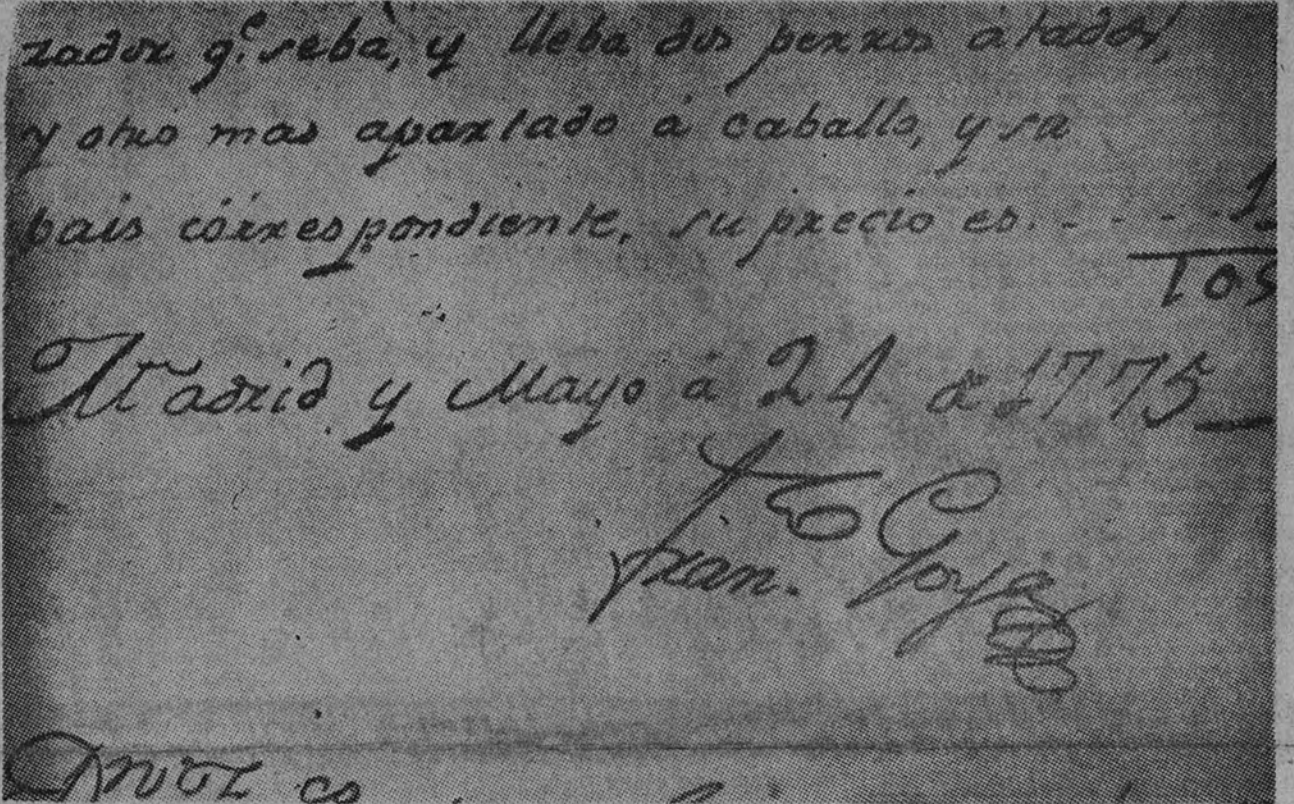 zador q.e se ba, y lleba dos perros atados,
y otro mas apartado á caballo, y su
pais córrespondiente, su precio es. - - - 1
Tos
Madrid y Mayo á 24 de 1775
Fran.co Goya